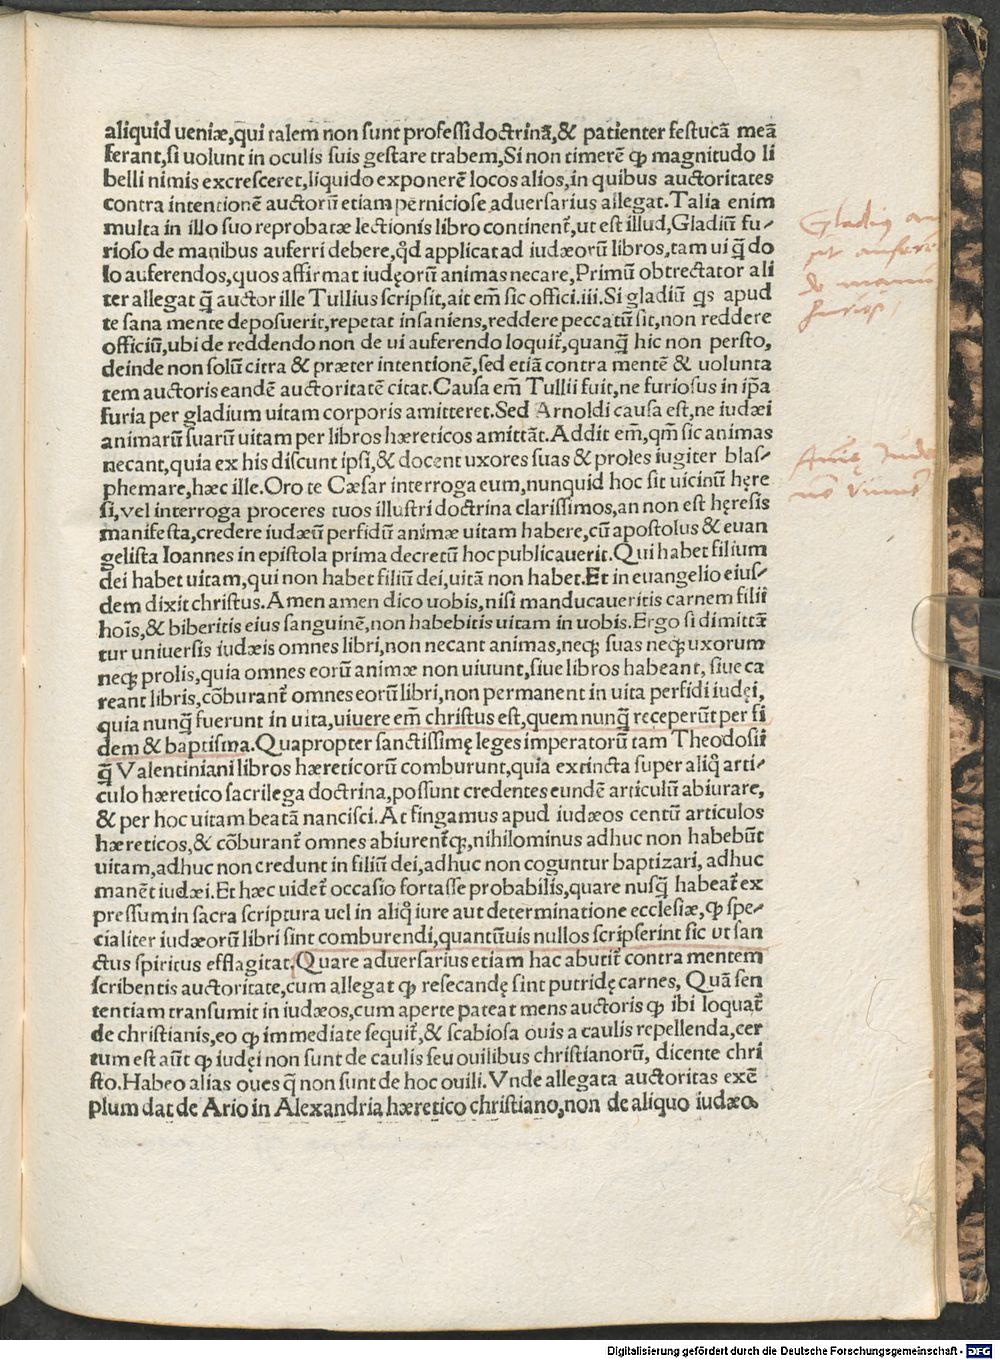 aliquid ueniæ,qui talem non sunt professi doctrinã,& patienter festucã meã
ferant,si uolunt in oculis suis gestare trabem,Si non timerẽ ꝙ magnitudo li
belli nimis excresceret,liquido exponerẽ locos alios,in quibus auctoritates
contra intentionẽ auctorũ etiam perniciose aduersarius allegat.Talia enim
multa in illo suo reprobatæ lectionis libro continent᷑,ut est illud,Gladiũ fu⸗
rioso de manibus auferri debere,qd̛ applicat ad iudæorũ libros,tam ui q̃ do
lo auferendos,quos affirmat iudęorũ animas necare,Primũ obtrectator ali
ter allegat q̃ auctor ille Tullius scripsit,ait em̃ sic offici.iii.Si gladiũ qs apud
te sana mente deposuerit,repetat insaniens,reddere peccatũ sit,non reddere
officiũ,ubi de reddendo non de ui auferendo loquit᷑,quanq̃ hic non persto,
deinde non solũ citra & præter intentionẽ,sed etiã contra mentẽ & uolunta
tem auctoris eandẽ auctoritatẽ citat.Causa em̃ Tullii fuit,ne furiosus in ip̃a
furia per gladium uitam corporis amitteret.Sed Arnoldi causa est,ne iudæi
animarũ suarũ uitam per libros hæreticos amittãt.Addit em̃,qm̃ sic animas
necant,quia ex his discunt ipsi,& docent uxores suas & proles iugiter blas⸗
phemare,hæc ille.Oro te Cæsar interroga eum,nunquid hoc sit uicinũ hęre
si,vel interroga proceres tuos illustri doctrina clarissimos,an non est hęresis
manifesta,credere iudæũ perfidũ animæ uitam habere,cũ apostolus & euan
gelista Ioannes in epistola prima decretũ hoc publicauerit.Qui habet filium
dei habet uitam,qui non habet filiũ dei,uitã non habet.Et in euangelio eius⸗
dem dixit christus.Amen amen dico uobis,nisi manducaueritis carnem filii
hoĩs,& biberitis eius sanguinẽ,non habebitis uitam in uobis.Ergo si dimittã
tur uniuersis iudæis omnes libri,non necant animas,neqꝫ suas neqꝫ uxorum
neqꝫ prolis,quia omnes eorũ animæ non uiuunt,siue libros habeant, siue ca
reant libris,cõburant᷑ omnes eorũ libri,non permanent in uita perfidi iudęi,
quia nunq̃ fuerunt in uita,uiuere em̃ christus est,quem nunq̃ receperũt per fi
dem & baptisma.Quapropter sanctissimę leges imperatorũ tam Theodosii
q̃ Valentiniani libros hæreticorũ comburunt,quia extincta super aliq̊ arti⸗
culo hæretico sacrilega doctrina,possunt credentes eundẽ articulũ abiurare,
& per hoc uitam beatã nancisci.At fingamus apud iudæos centũ articulos
hæreticos,& cõburant᷑ omnes abiurent᷑qꝫ,nihilominus adhuc non habebũt
uitam,adhuc non credunt in filiũ dei,adhuc non coguntur baptizari, adhuc
manẽt iudæi.Et hæc uidet᷑ occasio fortasse probabilis,quare nusq̃ habeat᷑ ex
pressum in sacra scriptura uel in aliq̊ iure aut determinatione ecclesiæ,ꝙ spe⸗
cialiter iudæorũ libri sint comburendi,quantũuis nullos scripserint sic vt san
ctus spiritus efflagitat.Quare aduersarius etiam hac abutit᷑ contra mentem
scribentis auctoritate,cum allegat ꝙ resecandę sint putridę carnes, Quã sen
tentiam transumit in iudæos,cum aperte pateat mens auctoris ꝙ ibi loquat᷑
de christianis,eo ꝙ immediate sequit᷑,& scabiosa ouis a caulis repellenda,cer
tum est aũt ꝙ iudęi non sunt de caulis seu ouilibus christianorũ, dicente chri
sto.Habeo alias oues q̃ non sunt de hoc ouili.Vnde allegata auctoritas exẽ
plum dat de Ario in Alexandria hæretico christiano,non de aliquo iudæo.
Digitalisierung gefördert durch die Deutsche Forschungsgemeinschaft - DFG